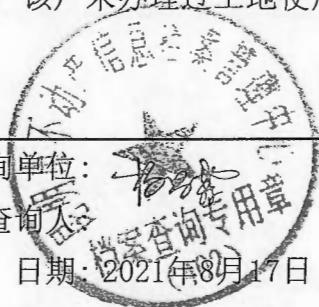 该户未办理过土地使用
询单位：
查询人
日期：2021年8月17日
不动产信息档案管理中心
档案查询专用章